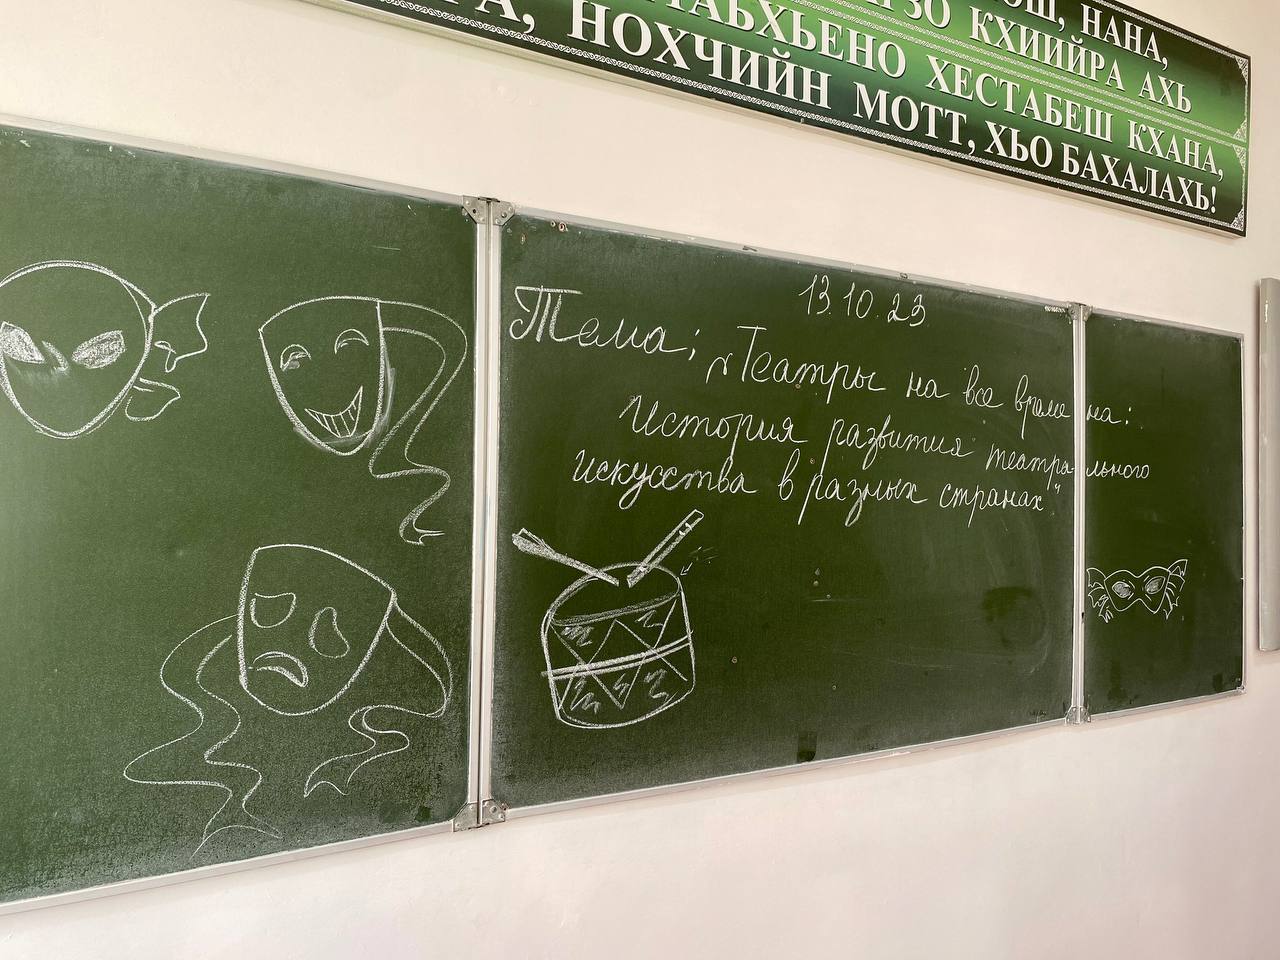 НАНА,
КХИИЙРА АХЬ
ХЕСТАБЕШ КХАНА,
НОХЧИЙН МОТТ, ХЬО БАХАЛАХЬ!
13.10.23
Тема: „Театры на все времена:
История развития театрального
искусства в разных странах"